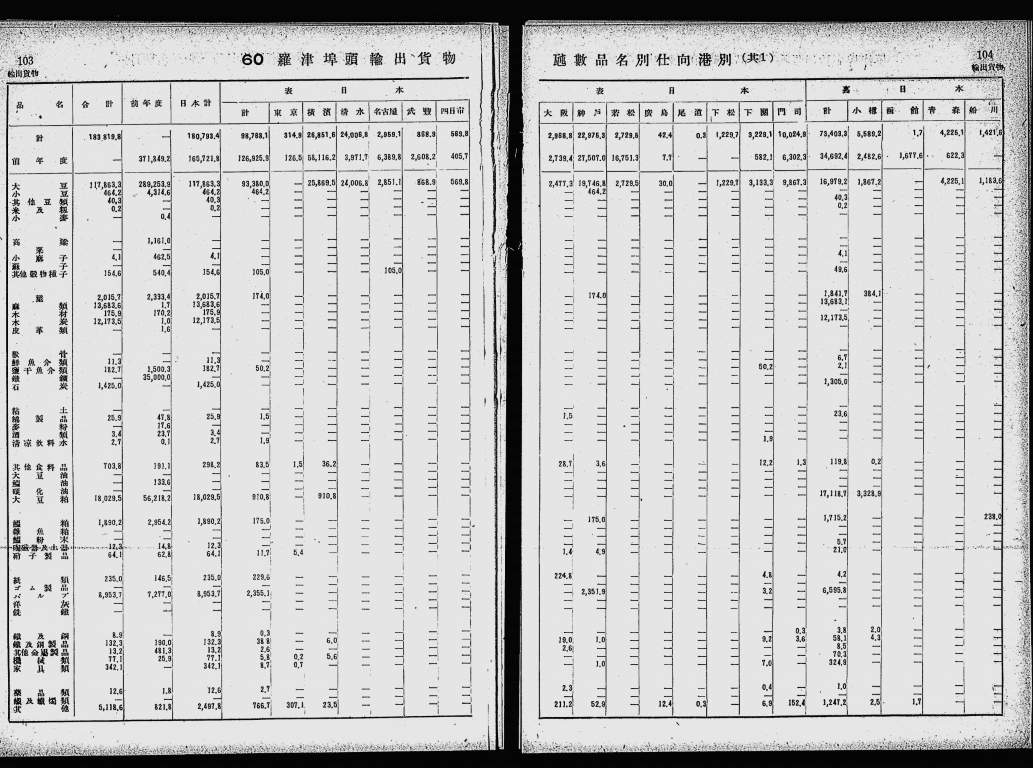 103
輸出貨物
60 羅津埠頭輸出貨物
品名 合計 前年度 日本計 表日本
計 東京 橫濱 清水 名古屋 武豐 四日市
計 183,819,8 — 180,793.4 98,768,1 314,9 26,851,6 24,006,8 2,959,1 868,9 569,8
前年度 — 371,849,2 165,721,8 126,925,9 126,5 58,116,2 3,971,7 6,389,8 2,608,2 405,7
大豆 117,863,3 289,253,9 117,863,3 93,380,0 — 25,869,5 24,006,8 2,851,1 868,9 569,8
小豆 464,2 4,314,6 464,2 464,2
其他豆類 40,3 — 40,3
米及籾 0,2 — 0,2
小麥 — 0,4 —
高粱 — 1,161,0 —
粟
小麻子 4,1 462,5 4,1
蘇子
其他穀物種子 154,6 540,4 154,6 105,0 — — — 105,0
鹽 2,015,7 2,333,4 2,015,7 174,0
麻類 13,683,6 1,7 13,683,6
木材 175,9 170,2 175,9
木炭 12,173,5 1,0 12,173,5
皮革類 — 1,6 —
獸骨
鮮魚介類 11,3 — 11,3
鹽干魚介類 182,7 1,500,3 182,7 50,2
鐵鑛 — 35,000,0 —
石炭 1,425,0 — 1,425,0
粘土
綿製品 25,9 47,8 25,9 1,5
麥粉 — 17,6 —
酒類 3,4 23,7 3,4
清凉飮料水 2,7 0,1 2,7 1,9
其他食料品 703,8 191,1 298,2 83,5 1,5 36,2
大豆油
鰮油 — 133,6 —
硬化油
大豆粕 18,029,5 56,218,2 18,029,5 910,8 — 910,8
鰮粕 1,890,2 2,954,2 1,890,2 175,0
雜魚粕
鰮粉末
陶磁器及土器 12,3 14,8 12,3
硝子製品 64,1 62,8 64,1 11,7 5,4
紙類 235,0 146,5 235,0 229,6
ゴム製品
パルプ 8,953,7 7,277,0 8,953,7 2,355,1
洋灰
銑鐵
鐵及鋼 8,9 — 8,9 0,3
鐵及鋼製品 132,3 190,0 132,3 38,8 — 6,0
其他金屬製品 13,2 481,3 13,2 2,6
機械類 77,1 25,9 77,1 5,8 0,2 5,6
家具類 342,1 — 342,1 8,7 0,7
藥品類 12,6 1,8 12,6 2,7
蠟及蠟燭類
其他 5,118,6 821,8 2,497,8 766,7 307,1 23,5
104
輸出貨物
噸數品名別仕向港別(共1)
表日本 裏日本
大阪 神戶 若松 廣島 尾道 下松 下關 門司 計 小樽 函館 青森 船川
2,958,8 22,975,3 2,729,5 42,4 0,3 1,229,7 3,229,1 10,024,9 73,403,3 5,589,2 1,7 4,225,1 1,421,6
2,739,4 27,507,0 16,751,3 7,7 — — 582,1 6,302,3 34,692,4 2,482,6 1,677,6 622,3 —
2,477,3 19,746,8 2,729,5 30,0 — 1,229,7 3,133,3 9,867,3 16,979,2 1,867,2 — 4,225,1 1,183,6
464,2
40,3
0,2
4,1
49,6
174,0 1,841,7 384,1
13,683,1
12,173,5
6,7
50,2 2,1
1,305,0
1,5 23,6
1,9
28,7 3,6 12,2 1,3 119,8 0,2
17,118,7 3,328,9
175,0 1,715,2 238,0
5,7
1,4 4,9 21,0
224,8 4,8 4,2
2,351,9 3,2 6,595,8
0,3 3,8 2,0
19,0 1,0 9,2 3,6 58,1 4,3
2,6 8,5
70,3
1,0 7,0 324,9
2,3 0,4 1,0
211,2 52,9 — 12,4 0,3 — 6,9 152,4 1,247,2 2,5 1,7